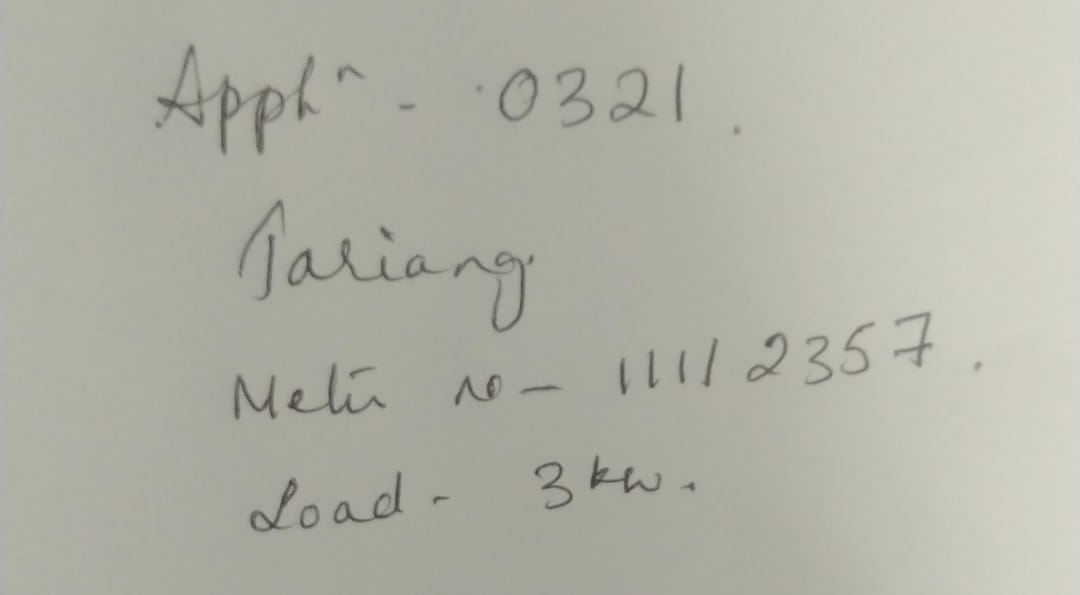 Appln - 0321.
Tariang
Meter no - 11112357.
Load - 3 kw.